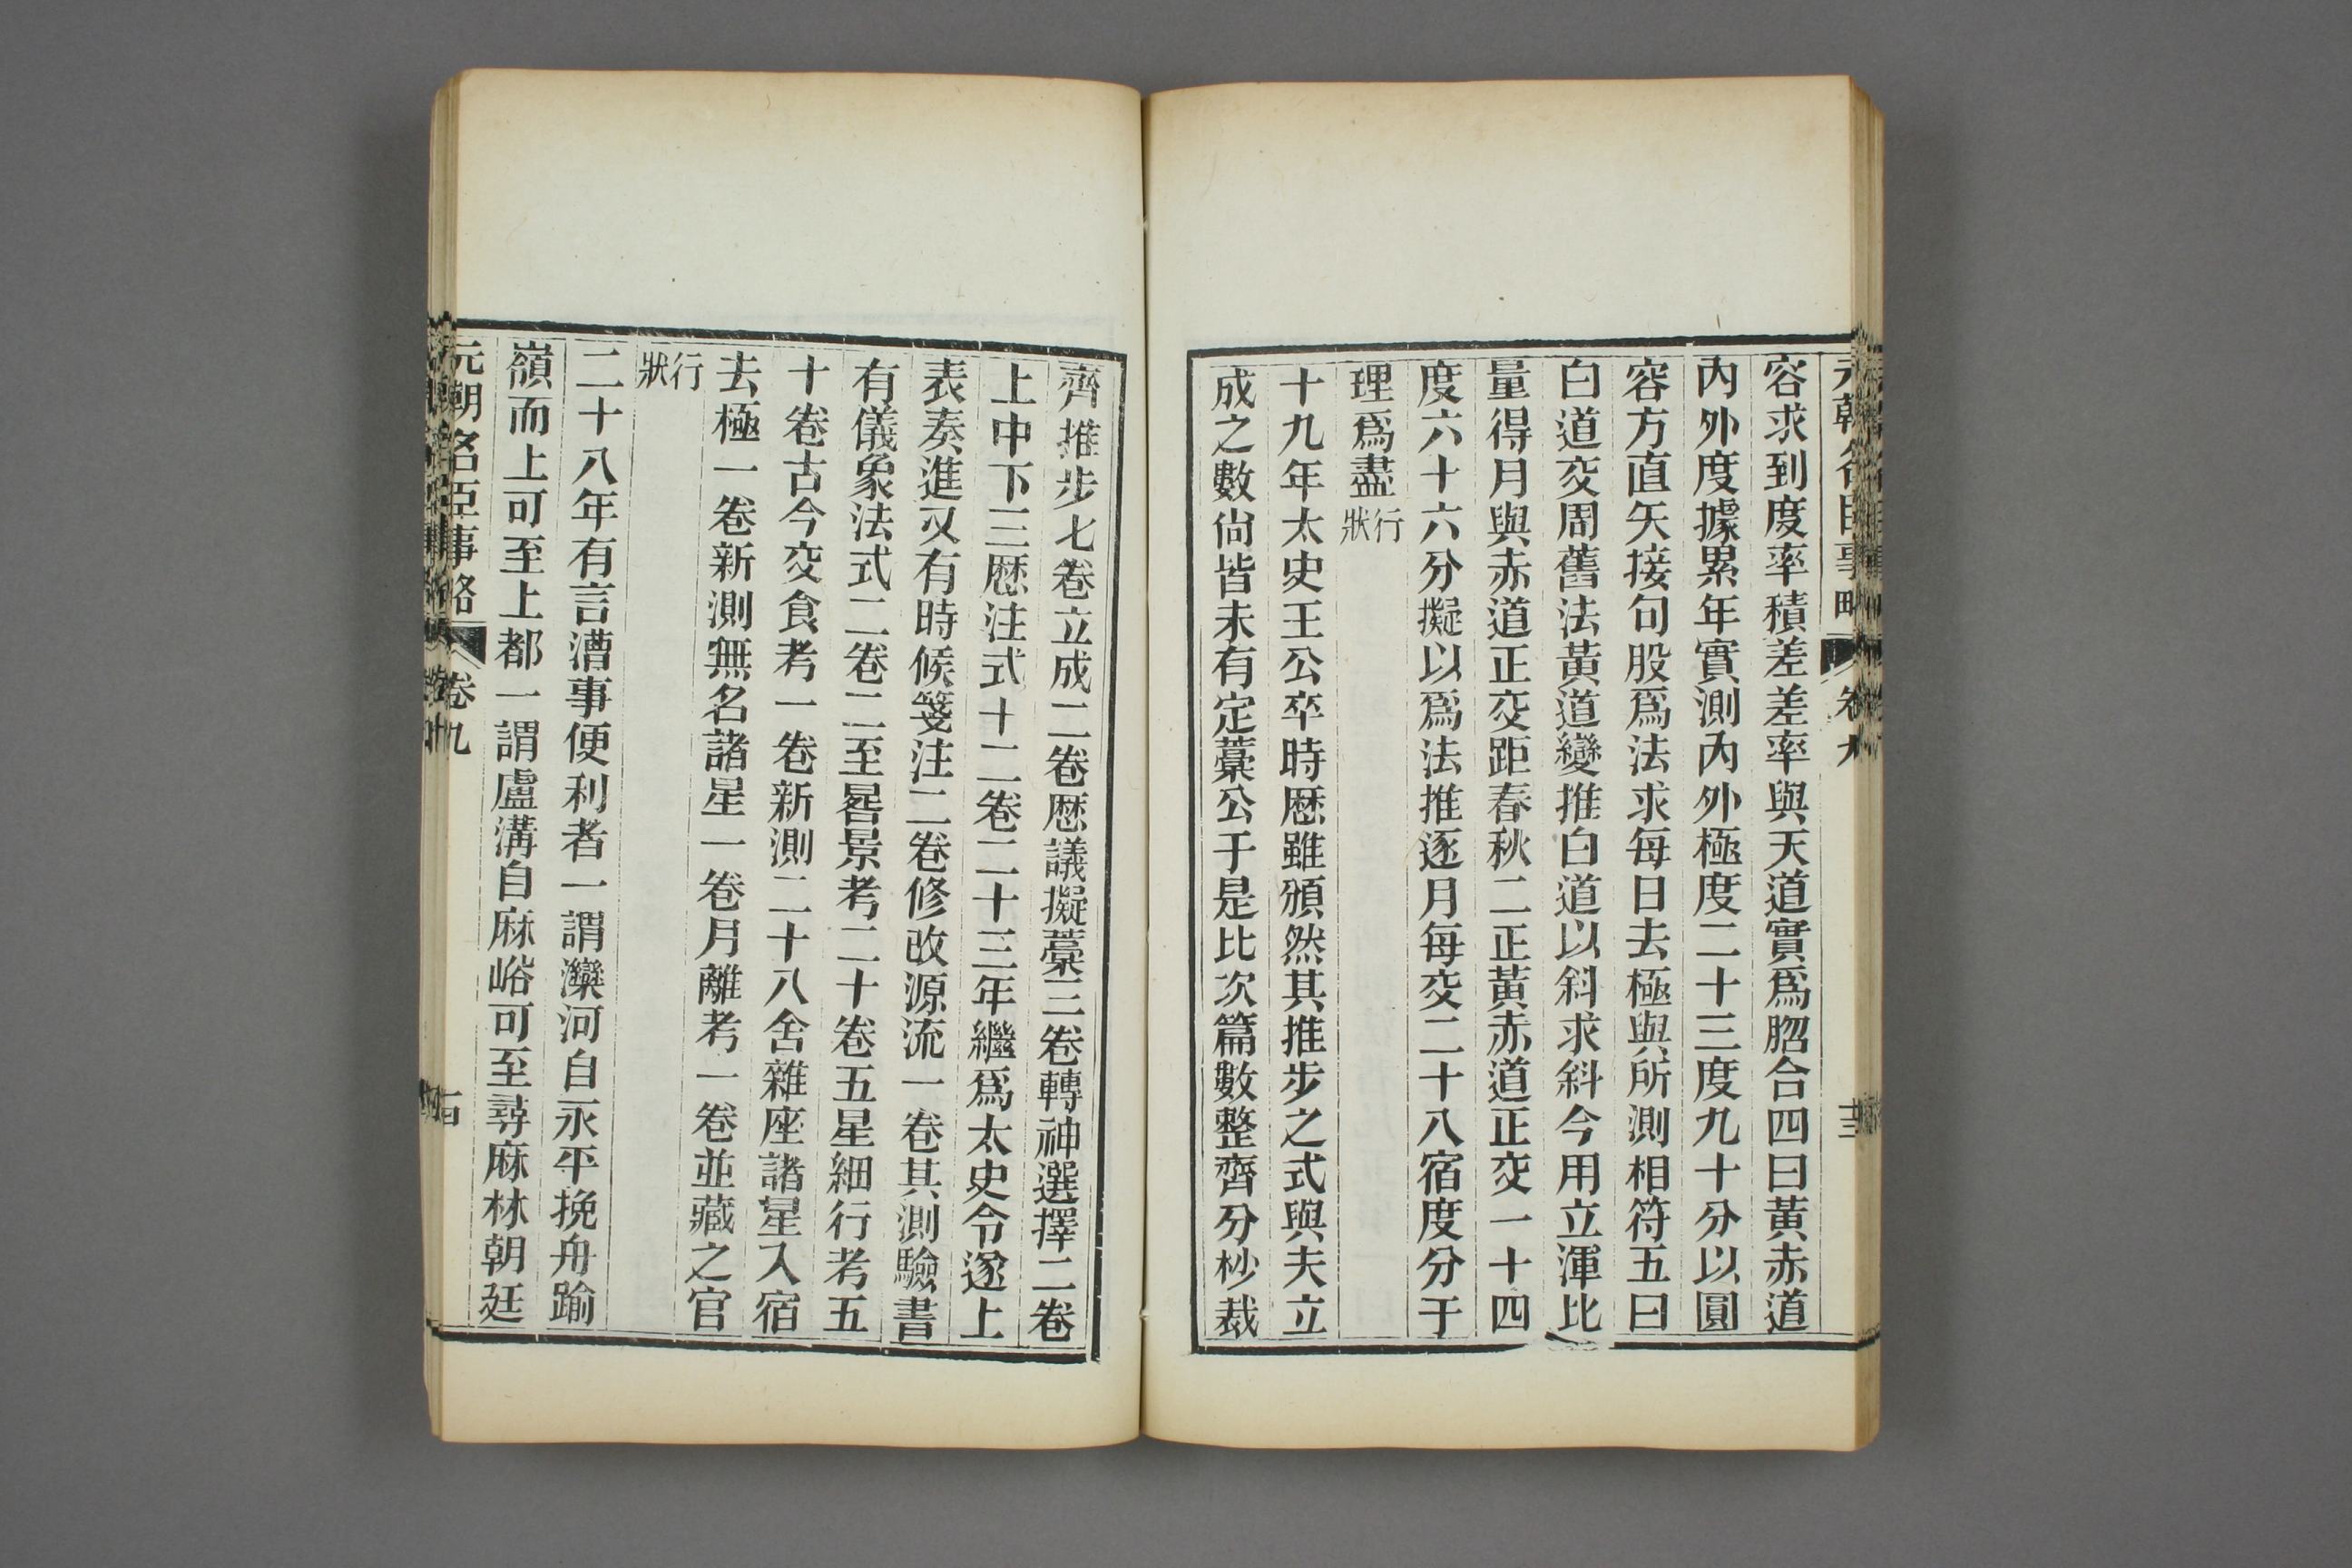 容求到度率積差差率與天道實爲脗合四曰黃赤道
內外度據累年實測內外極度二十三度九十分以圓
容方直矢接句股爲法求每日去極與所測相符五曰
白道交周舊法黃道變推白道以斜求斜今用立渾比
量得月與赤道正交距春秋二正黃赤道正交一十四
度六十六分擬以爲法推逐月每交二十八宿度分于
理爲盡行狀
十九年太史王公卒時厯雖頒然其推步之式與夫立
成之數尙皆未有定藁公于是比次篇數整齊分杪裁
齊推步七卷立成二卷厯議擬藁三卷轉神選擇二卷
上中下三厯注式十二卷二十三年繼爲太史令遂上
表奏進又有時候箋注二卷修改源流一卷其測驗書
有儀象法式二卷二至晷景考二十卷五星細行考五
十卷古今交食考一卷新測二十八舍雜座諸星入宿
去極一卷新測無名諸星一卷月離考一卷並藏之官
行狀
二十八年有言漕事便利者一謂灤河自永平挽舟踰
嶺而上可至上都一謂盧溝自麻峪可至尋麻林朝廷
元朝名臣事略 卷九